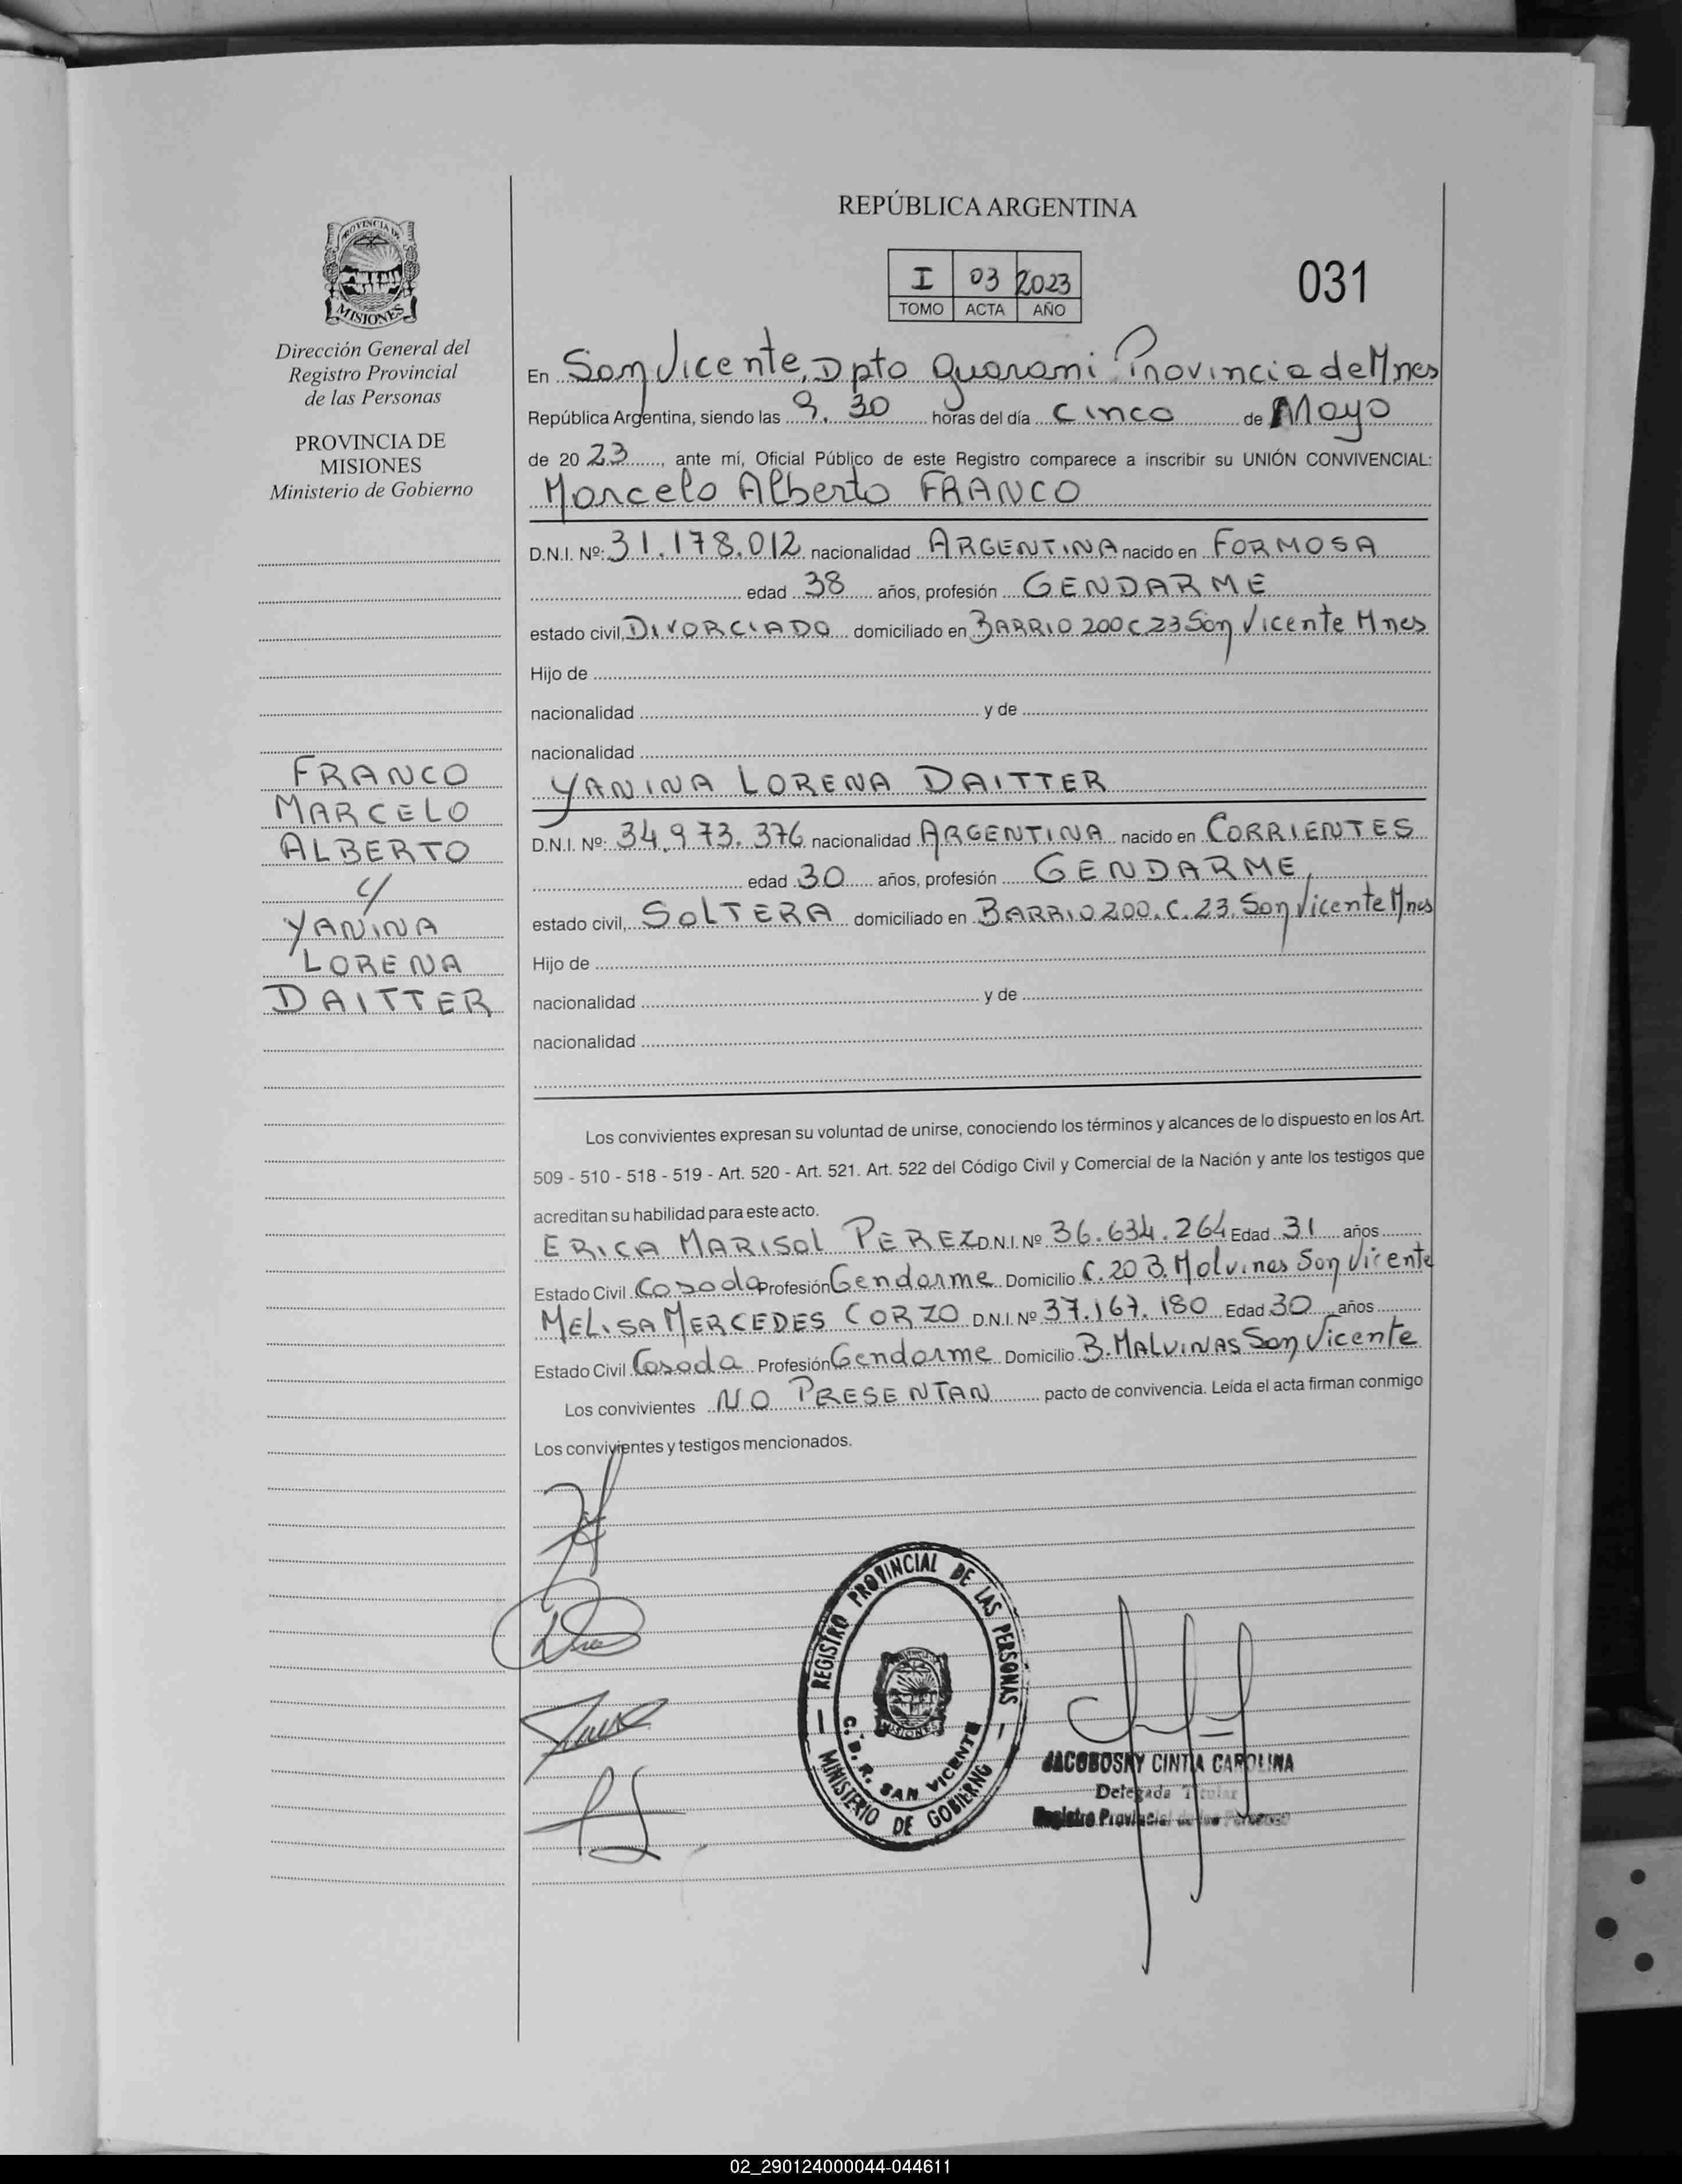 REPÚBLICA ARGENTINA
I 03 2023
TOMO ACTA AÑO
031
PROVINCIA DE
MISIONES
Dirección General del
Registro Provincial
de las Personas
PROVINCIA DE
MISIONES
Ministerio de Gobierno
FRANCO
MARCELO
ALBERTO
Y
YANINA
LORENA
DAITTER
En San Vicente, Dpto Guarani Provincia de Mnes
República Argentina, siendo las 9.30 horas del día cinco de Mayo
de 20 23, ante mí, Oficial Público de este Registro comparece a inscribir su UNIÓN CONVIVENCIAL:
Marcelo Alberto FRANCO
D.N.I. Nº: 31.178.012 nacionalidad ARGENTINA nacido en FORMOSA
edad 38 años, profesión GENDARME
estado civil, DIVORCIADO domiciliado en BARRIO 200 C 23 San Vicente Mnes
Hijo de
nacionalidad y de
nacionalidad
YANINA LORENA DAITTER
D.N.I. Nº: 34.973.376 nacionalidad ARGENTINA nacido en CORRIENTES
edad 30 años, profesión GENDARME
estado civil, SOLTERA domiciliado en BARRIO 200. C. 23. San Vicente Mnes
Hijo de
nacionalidad y de
nacionalidad
Los convivientes expresan su voluntad de unirse, conociendo los términos y alcances de lo dispuesto en los Art.
509 - 510 - 518 - 519 - Art. 520 - Art. 521. Art. 522 del Código Civil y Comercial de la Nación y ante los testigos que
acreditan su habilidad para este acto.
ERICA MARISOL PEREZ D.N.I. Nº 36.634.264 Edad 31 años
Estado Civil Casada Profesión Gendarme Domicilio C. 20 B. Malvinas San Vicente
MELISA MERCEDES CORZO D.N.I. Nº 37.167.180 Edad 30 años
Estado Civil Casada Profesión Gendarme Domicilio B. MALVINAS San Vicente
Los convivientes NO PRESENTAN pacto de convivencia. Leída el acta firman conmigo
Los convivientes y testigos mencionados.
REGISTRO PROVINCIAL DE LAS PERSONAS
MINISTERIO DE GOBIERNO
C. D. R. SAN VICENTE
MISIONES
JACOBOSKY CINTIA CAROLINA
Delegada Titular
Registro Provincial de las Personas
02_290124000044-044611